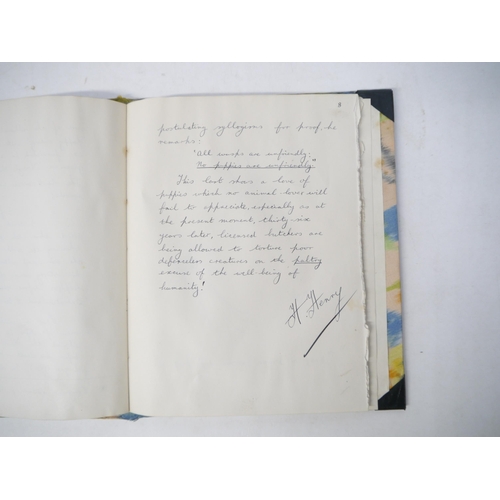 8
postulating syllogisms for proof he
remarks:
"All umaps are unfriendly;
No puppies are unfriendly."
This last shows a love of
puppies which no animal lover will
fail to appreciate; especially as at
the present moment, thirty six
years later, licensed butchers are
being allowed to torture poor
defenseless creatures on the paltry
excuse of the well-being of
humanity!
H Henry